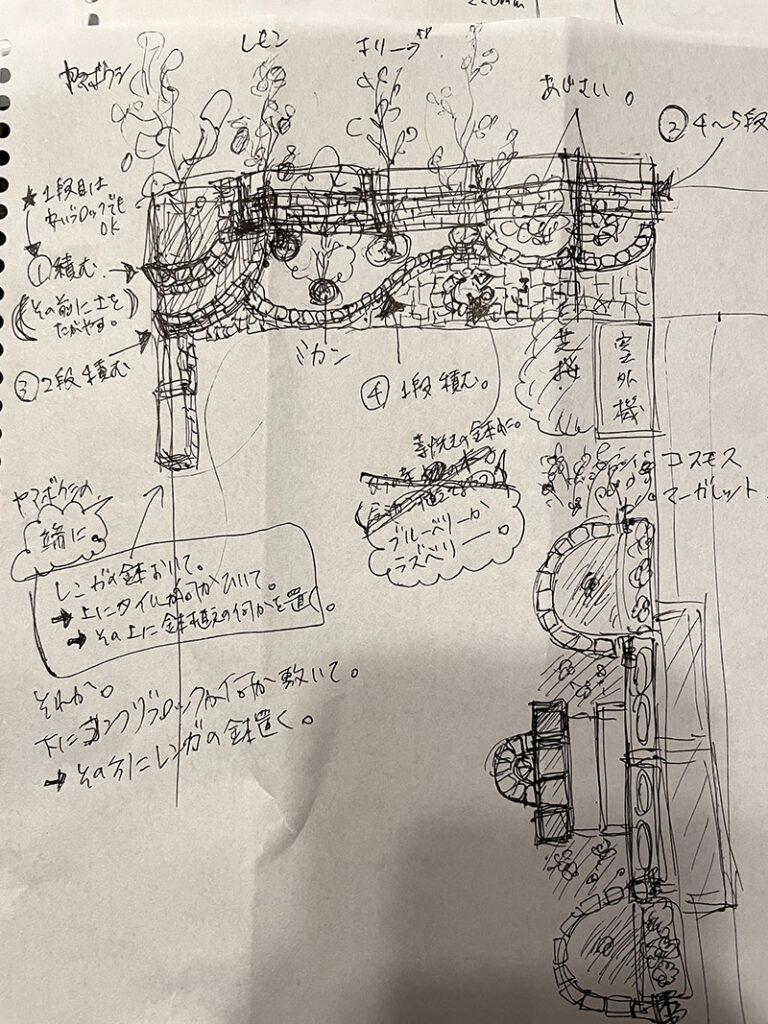 220mm
ヤマボウシ
レモン
オリーブ
あじさい。
② 4〜5段
★1段目は
安いブロックでも
OK
①積む
(その前に土を
たがやす。)
③2段積む
ミカン
④1段積む。
芝桜
室外機
コスモス
マーガレット
素焼きの鉢に。
ブルーベリーか
ラズベリー。
ヤマボウシの
端に。
レンガの鉢おいて。
→上にタイルか何かひいて。
→その上に鉢植えの何かを置く。
それか。
下にコンクリブロックか何か敷いて。
→その方にレンガの鉢置く。